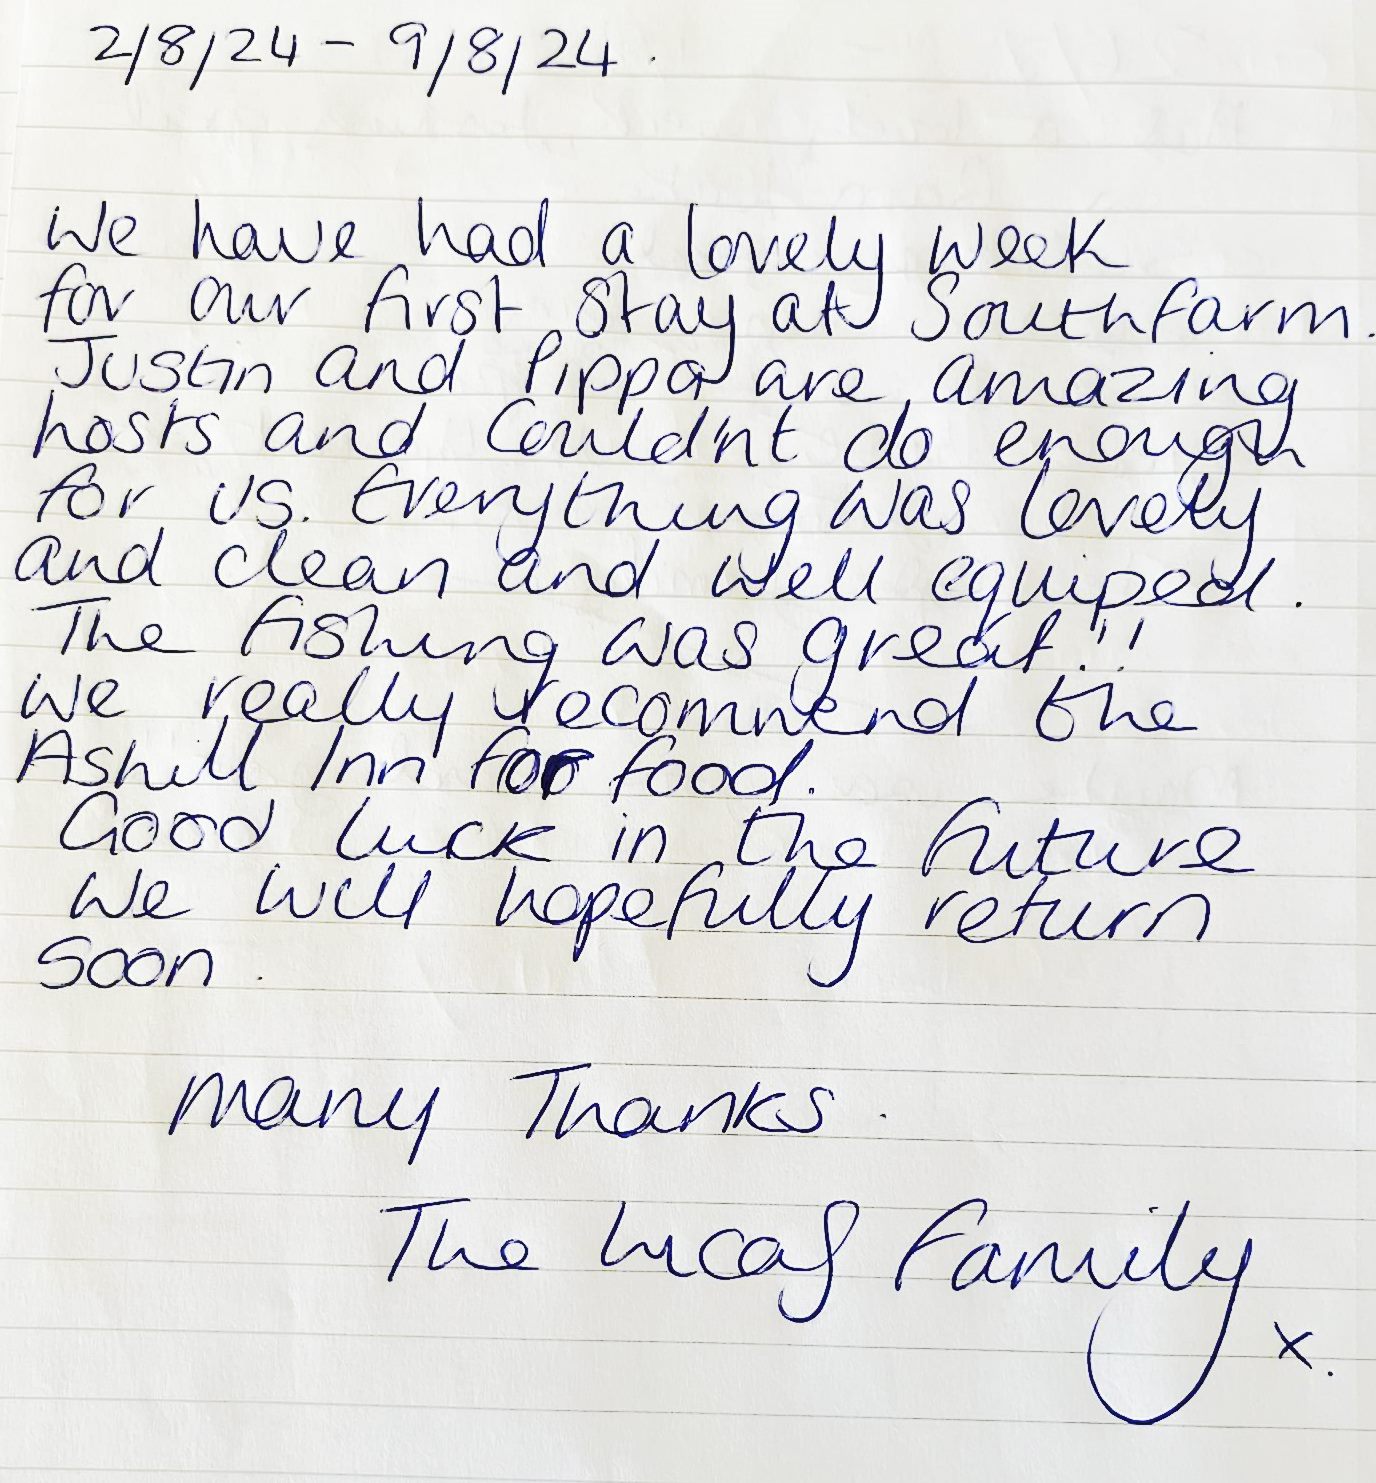 2/8/24 - 9/8/24.
We have had a lovely week
for our first stay at Southfarm.
Justin and Pippa are amazing
hosts and Could'nt do enough
for us. Everything was lovely
and clean and well equiped.
The fishing was great!!
We really recommend the
Ashill Inn for food.
Good luck in the future
We will hopefully return
soon.
Many Thanks.
The Lucas Family
x.